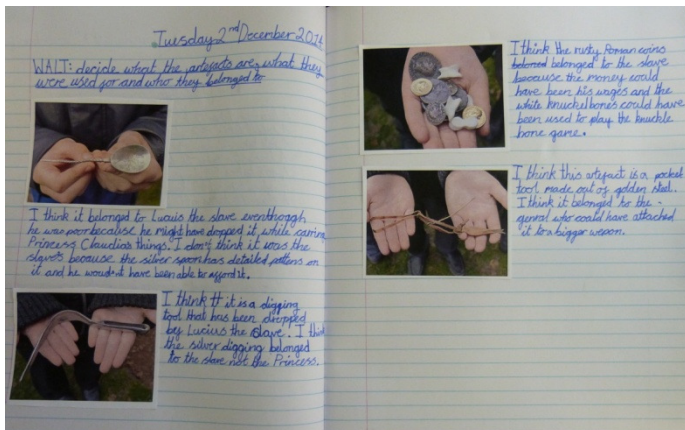 Tuesday 2nd December 2014
WALT: decide what the artefacts are, what they
were used for and who they belonged to
I think it belonged to Lucuis the slave eventhoogh
he was poor because he might have dropped it while carring
Princess Claudia things. I don't think it was the
slaves because the silver spoon has detailed pattens on
it and he would'nt have been able to afford it.
I think it is a digging
tool that has been dropped
by Lucius the slave. I think
the silver digging belonged
to the slave not the Princess.
I think the rusty Roman coins
belonged to the slave
because the money could
have been his wages and the
white knucklebones could have
been used to play the knuckle
bone game.
I think this artefact is a pocket
tool made out of golden steel.
I think it belonged to the
genral who could have attached
it to a bigger wepon.